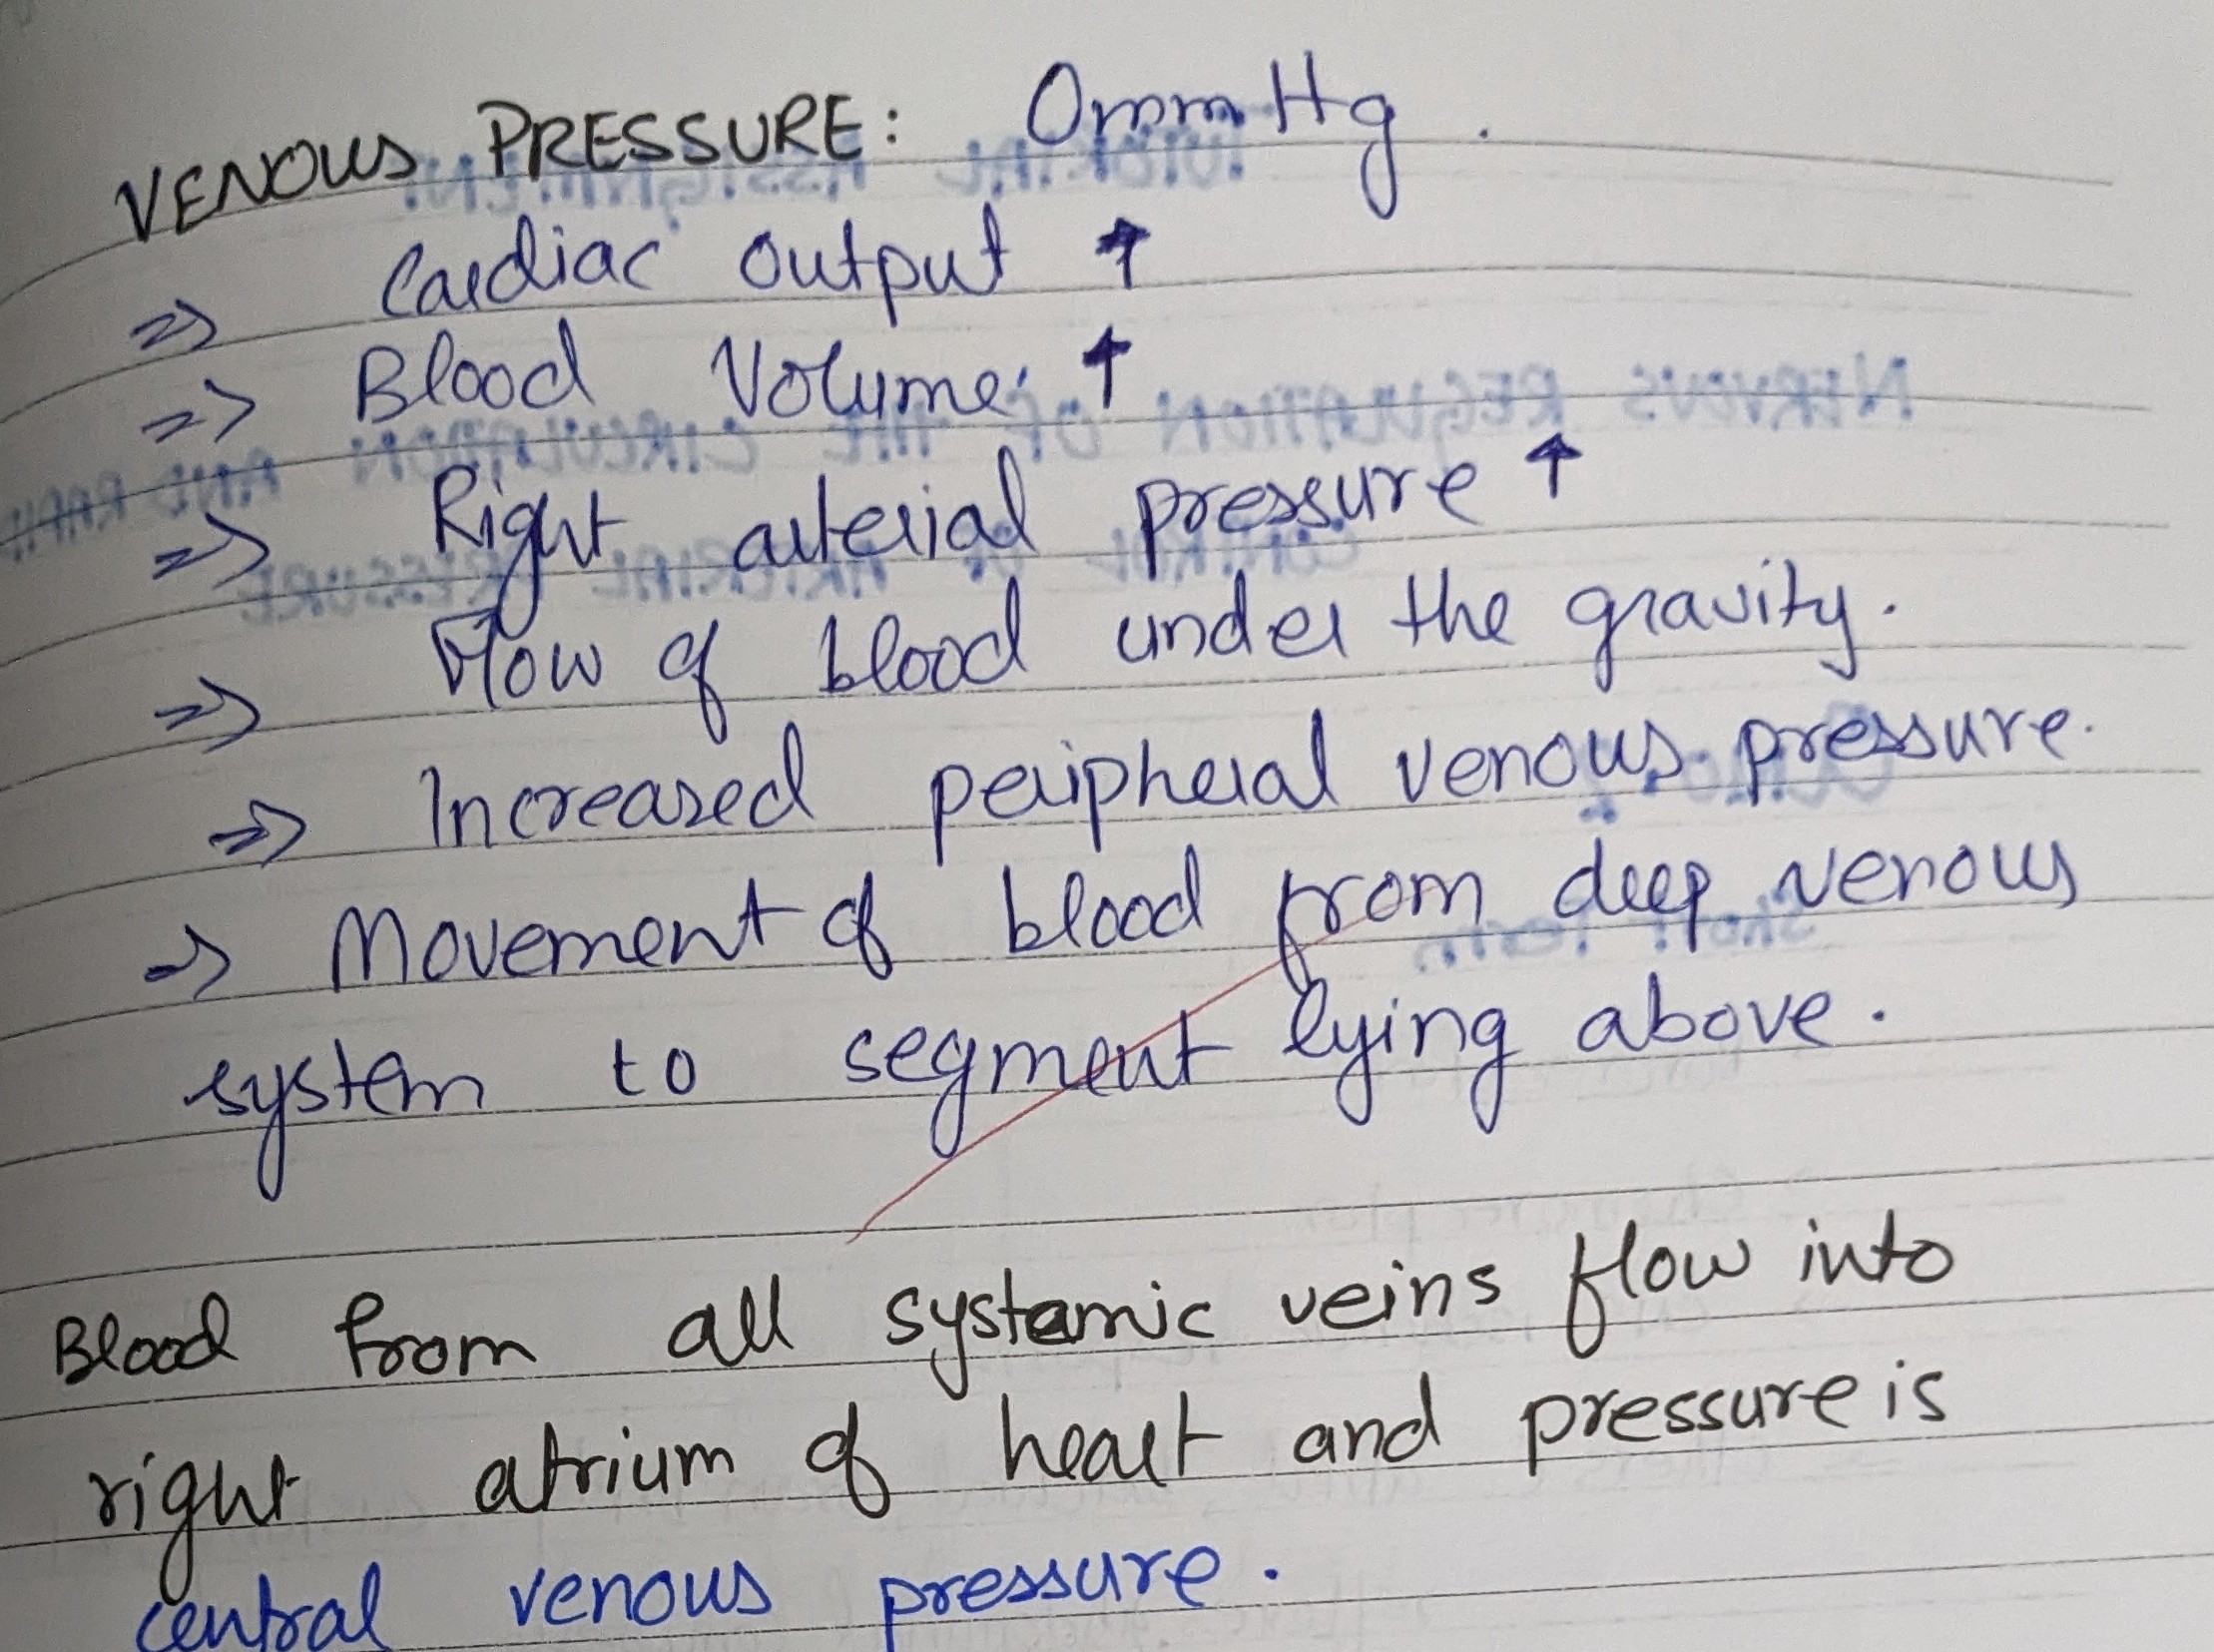 VENOUS PRESSURE: 0mmHg.
=> Cardiac output ↑
=> Blood Volume ↑
=> Right arterial pressure ↑
=> Flow of blood under the gravity.
=> Increased peripheral venous pressure.
=> Movement of blood from deep venous
system to segment lying above.
Blood from all systamic veins flow into
right atrium of heart and pressure is
central venous pressure.